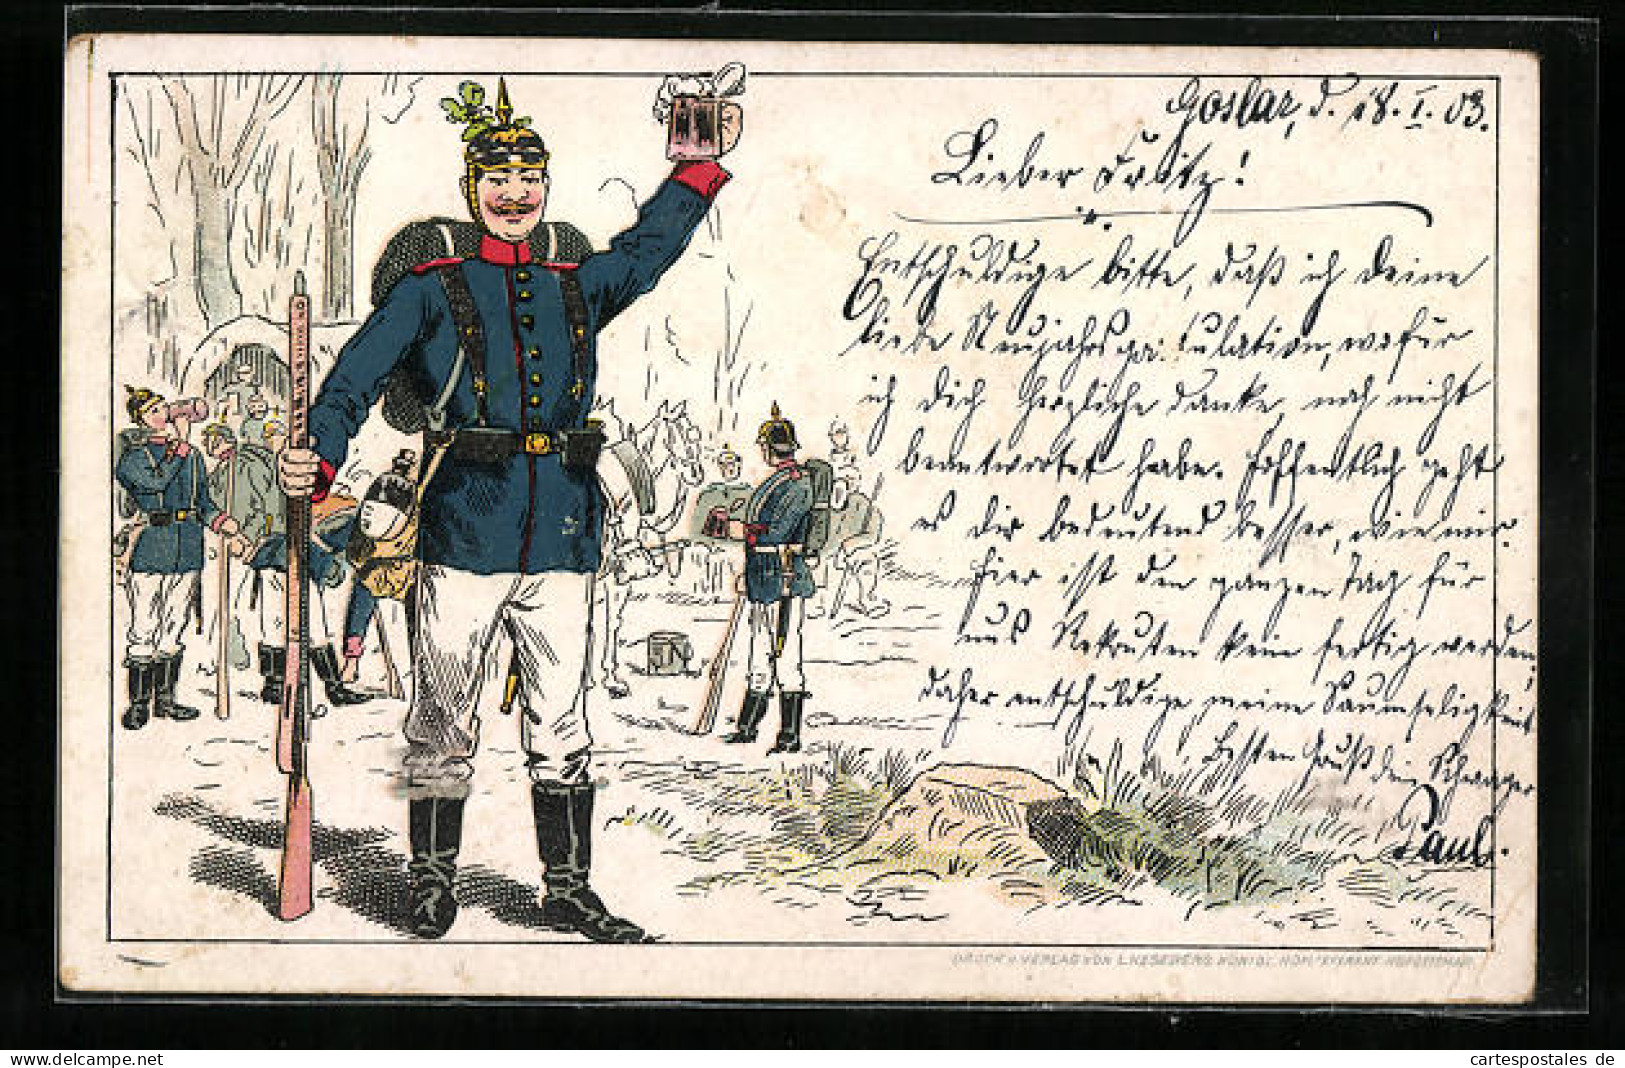 Goslar, d. 18.I.03.
Lieber Fritz!
Entschuldige bitte, daß ich Deine
liebe Neujahrsgratulation, wofür
ich Dich herzliche danke, noch nicht
beantwortet habe. Hoffentlich geht
es Dir bedeutend besser, wie mir.
Hier ist den ganzen Tag für
uns Rekruten kein fertig werden,
daher entschuldige meine Saumseligkeit
Besten Gruß dein Schwager
Paul.
DRUCK u. VERLAG VON
cartespostales de
www.delcampe.net